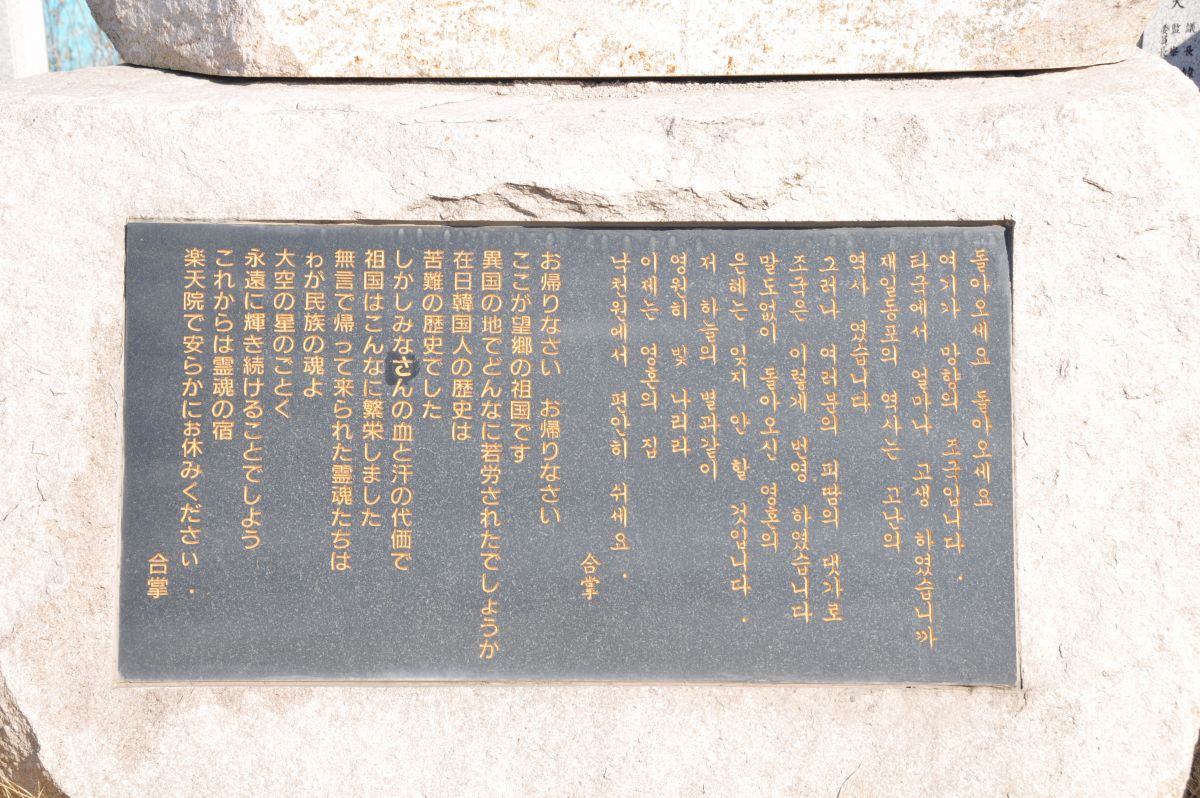 돌아오세요 돌아오세요
여기가 망향의 조국입니다.
타국에서 얼마나 고생 하였습니까
재일동포의 역사는 고난의
역사 였습니다
그러나 여러분의 피땀의 댓가로
조국은 이렇게 번영 하였습니다
말도없이 돌아오신 영혼의
은혜는 잊지 안 할 것입니다.
저 하늘의 별과같이
영원히 빛 나리라
이제는 영혼의 집
낙천원에서 편안히 쉬세요.
合掌
お帰りなさい お帰りなさい
ここが望郷の祖国です
異国の地でどんなに若労されたでしょうか
在日韓国人の歴史は
苦難の歴史でした
しかしみなさんの血と汗の代価で
祖国はこんなに繁栄しました
無言で帰って来られた霊魂たちは
わが民族の魂よ
大空の星のごとく
永遠に輝き続けることでしよう
これからは霊魂の宿
楽天院で安らかにお休みください.
合掌